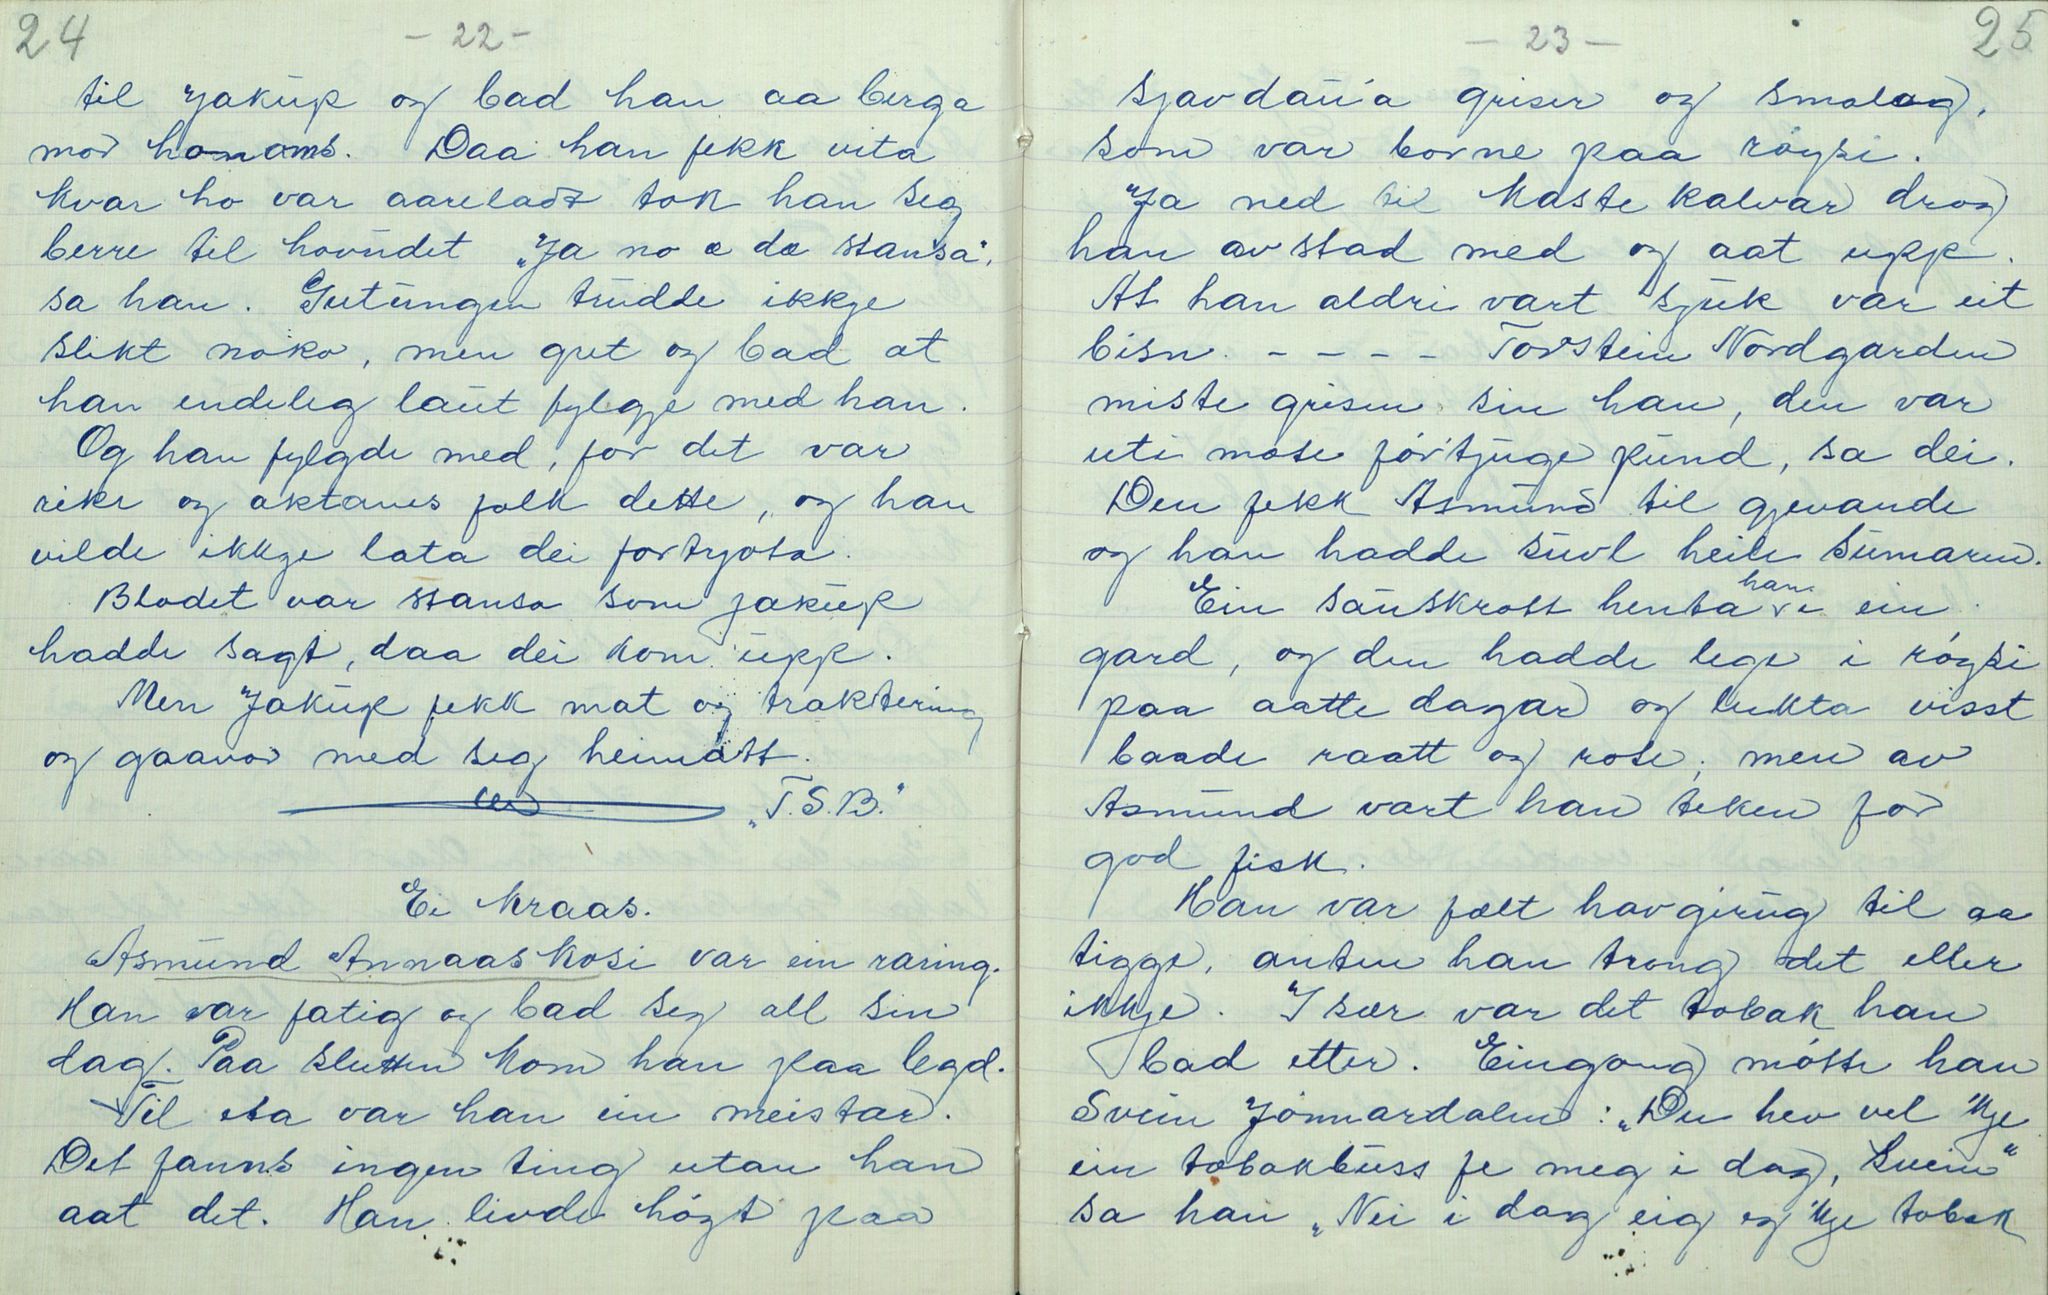 24
- 22 -
til Jakup og bad han aa berga
mor honoms. Daa han fekk vita
kvar ho var aareladt tok han seg
berre til hovudet „Ja no æ dæ stansa",
sa han. Gutungen trudde ikkje
slikt noko, men gret og bad at
han endeleg laut fylgje med han.
Og han fylgde med, for det var
rike og aktanes folk dette, og han
vilde ikkje lata dei fortyota.
Blodet var stansa som Jakup
hadde sagt, daa dei kom upp.
Men Jakup fekk mat og traktering
og gaavor med seg heimatt.
„T.S.B."
Ei Kraas.
Asmund Annaaskosi var ein raring.
Han var fatig og bad seg all sin
dag. Paa slutten kom han paa legd.
Til eta var han ein meistar.
Det fanns ingen ting utan han
aat det. Han livde högt paa
25
- 23 -
sjavdaua griser og smalog,
som var borne paa röysi.
Ja ned til kastekalvar drog
han avstad med og aat upp.
At han aldri vart sjuk var eit
bisn. - - - - Torstein Nordgarden
miste grisen sin han, den var
uti mose förtjuge pund, sa dei.
Den fekk Asmund til gjevande
og han hadde suvl heile sumaren.
Ein sauskrott henta han i ein
gard, og den hadde lege i röysi
paa aatte dagar og lukta visst
baade raatt og rose; men av
Asmund vart han teken for
god fisk.
Han var fælt havgirug til aa
tigge, anten han trong det eller
ikkje. Især var det tobak han
bad etter. Eingong mötte han
Svein Jönnardalen: „Du hev vel 'kje
ein tobakbuss fe meg i dag, Svein"
sa han „Nei i dag eig eg 'kje tobak